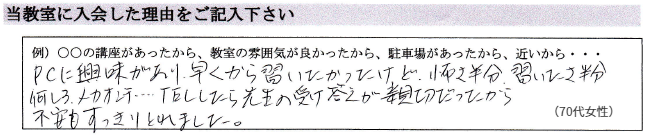 当教室に入会した理由をご記入下さい
例）〇〇の講座があったから、教室の雰囲気が良かったから、駐車場があったから、近いから・・・
PCに興味があり、早くから習いたかったけど、怖さ半分、習いたさ半分
何しろ、メカオンチ‥‥TELしたら先生の受け答えが親切だったから
不安もすっきりとれました。
（70代女性）